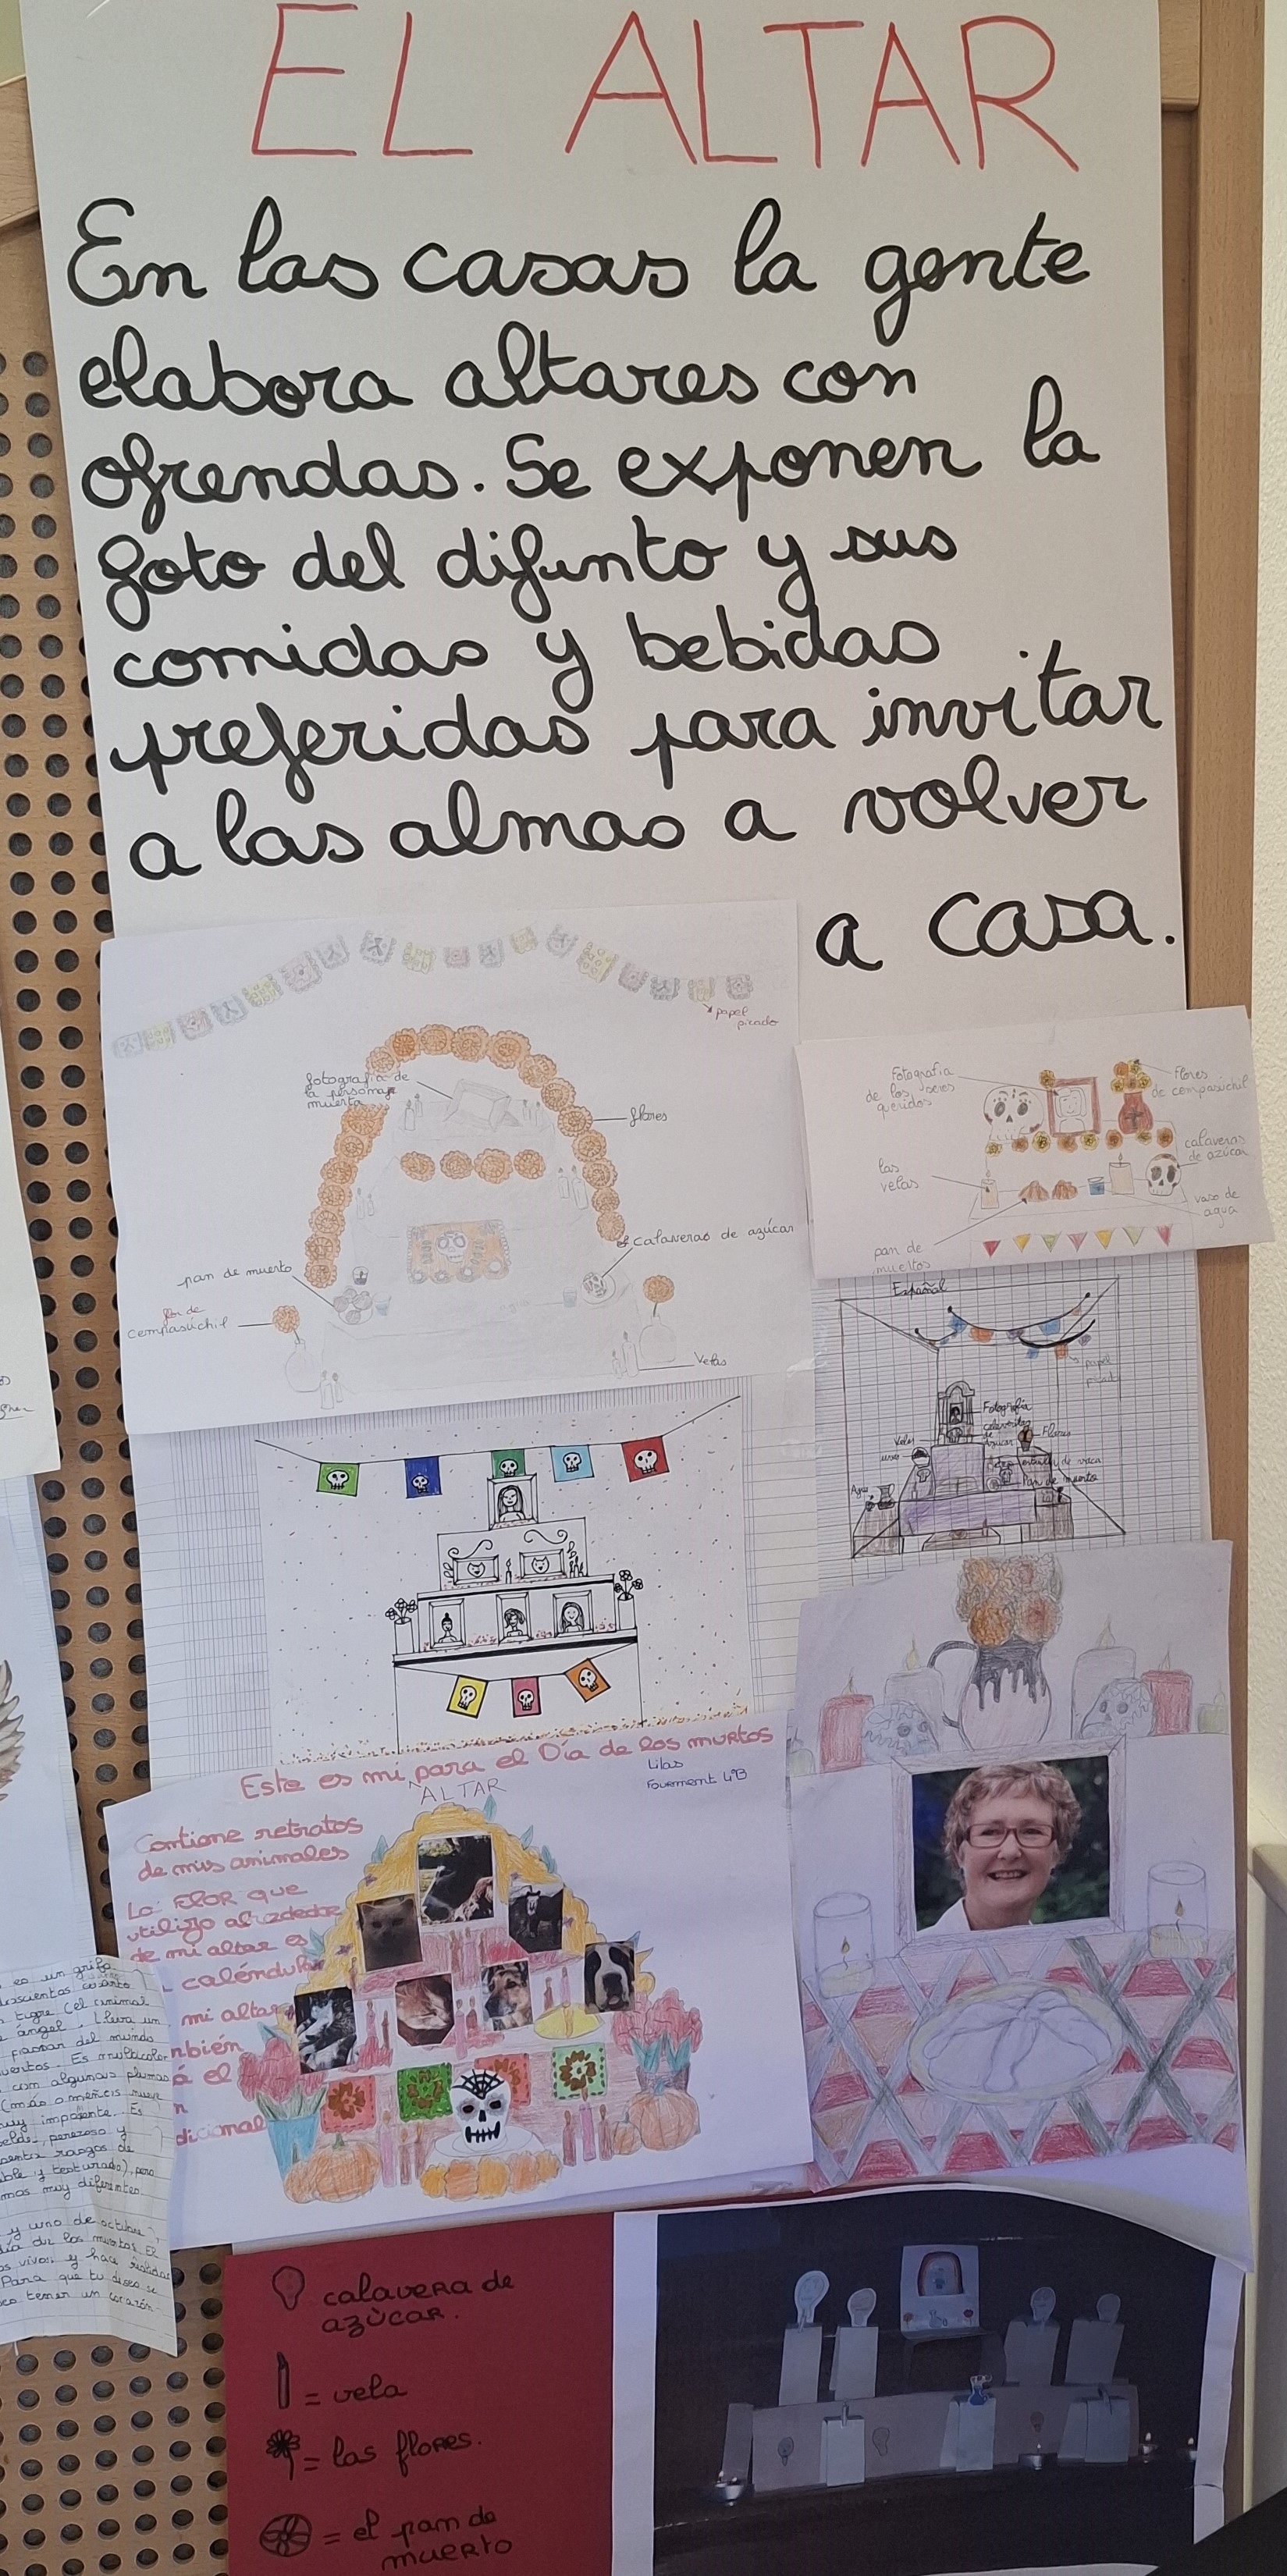 EL ALTAR
En las casas la gente
elabora altares con
ofrendas. Se exponen la
foto del difunto y sus
comidas y bebidas
preferidas para invitar
a las almas a volver
a casa.
papel
picado
fotografia de
la persona
muerta
flores
calaveras de azúcar
pan de muerto
flor de
cempasúchil
Velas
Fotografia
de los seres
queridos
Flores
de cempasúchil
calaveras
de azúcar
las
velas
vaso de
agua
pan de
mueltos
Español
papel
Fotografía
Flores
Velas
Agua
Pan de muerto
Este es mi para el Día de los muRtos
ALTAR
Lilas
Fourment 4°B
Contiene retratos
de mis animales
La FLOR que
utilizo alrededor
de mi altar es
caléndula
mi altar
mbién
á el
dicional
es un grifo
doscientos cuarto
tigre (el animal
ángel. Lleva un
pasar del mundo
uertos. Es multicolor
con algunas plumas
(más o meñeis nueve
uy imponte. Es
elde, perezoso y
rasgos de
ble y texturado), pero
mos muy diferentes.
y uno de octubre
día du los muertos. El
os vivos y hace
Para que tu deseo se
tener un corazón
calaveRa de
azùcaR.
= vela
= las floRes.
= el pan de
mueRto